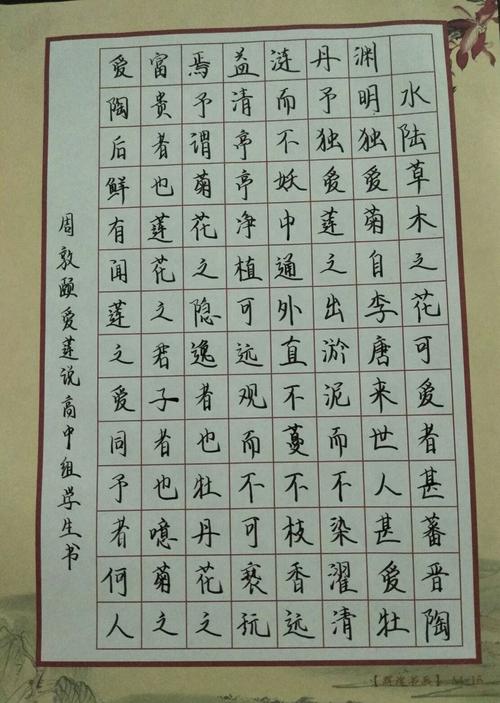 水陆草木之花可爱者甚蕃晋陶
渊明独爱菊自李唐来世人甚爱牡
丹予独爱莲之出淤泥而不染濯清
涟而不妖中通外直不蔓不枝香远
益清亭亭净植可远观而不可亵玩
焉予谓菊花之隐逸者也牡丹花之
富贵者也莲花之君子者也噫菊之
爱陶后鲜有闻莲之爱同予者何人
周敦颐爱莲说高中组学生书